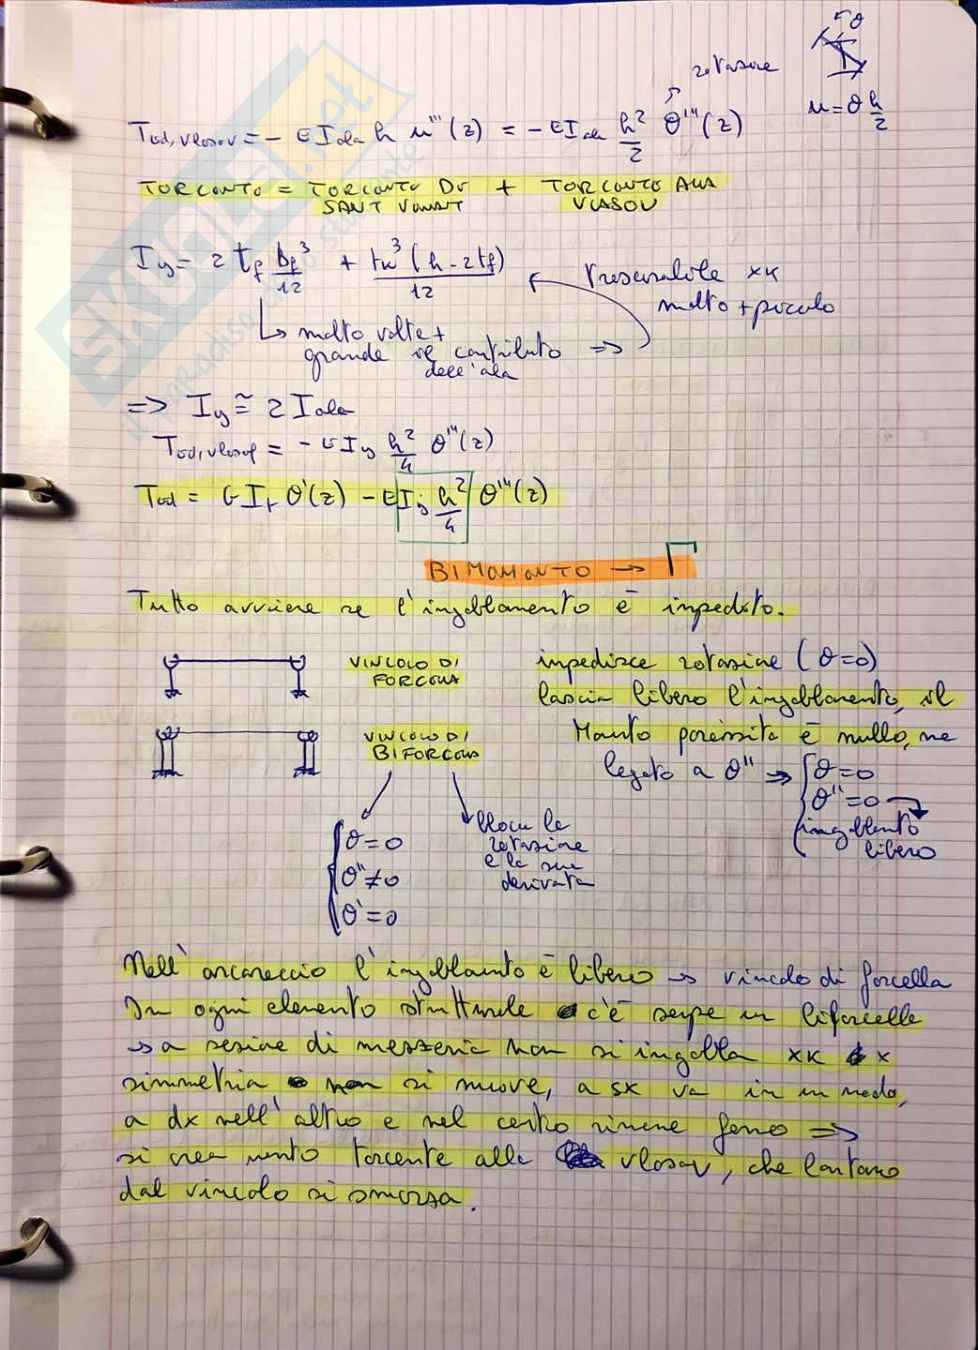 rotazione
θ
u = θ h/2
Tad,vlasov = - E I ala h u'''(z) = - E I ala h²/2 θ'''(z)
TORCENTE = TORCENTE DI SANT VENANT + TORCENTE ALLA VLASOV
Iy = 2 tf bf³/12 + tw³ (h - 2tf)/12
Trascurabile xk
molto + piccolo
↳ molte volte +
grande il contributo =>
dell'ala
=> Iy ≅ 2 I ala
Tad,vlasof = - E Iy h²/4 θ'''(z)
Tad = G It θ'(z) - E Iy h²/4 θ'''(z)
BIMOMENTO → Γ
Tutto avviene se l'ingobbamento è impedito.
VINCOLO DI
FORCELLA
impedisce rotazione (θ=0)
lascia libero l'ingobbamento, il
VINCOLO DI
BIFORCELLA
Mento parassita è nullo, ne
legato a θ'' => { θ=0
θ''=0
ingobbnto
libero
{ θ=0
θ''≠0
θ'=0
blocca la
rotazione
e la sua
derivata
Nell'arcareccio l'ingobbamento è libero → vincolo di forcella
In ogni elemento strutturale c'è sempre un biforcella
→ a sezione di mezzeria non si ingobba xk x
simmetria non si muove, a sx va in un modo,
a dx nell'altro e nel centro rimane fermo =>
si crea mento torcente alla vlasov, che lontano
dal vincolo si smorza.
skuola.net
il paradiso dello studente